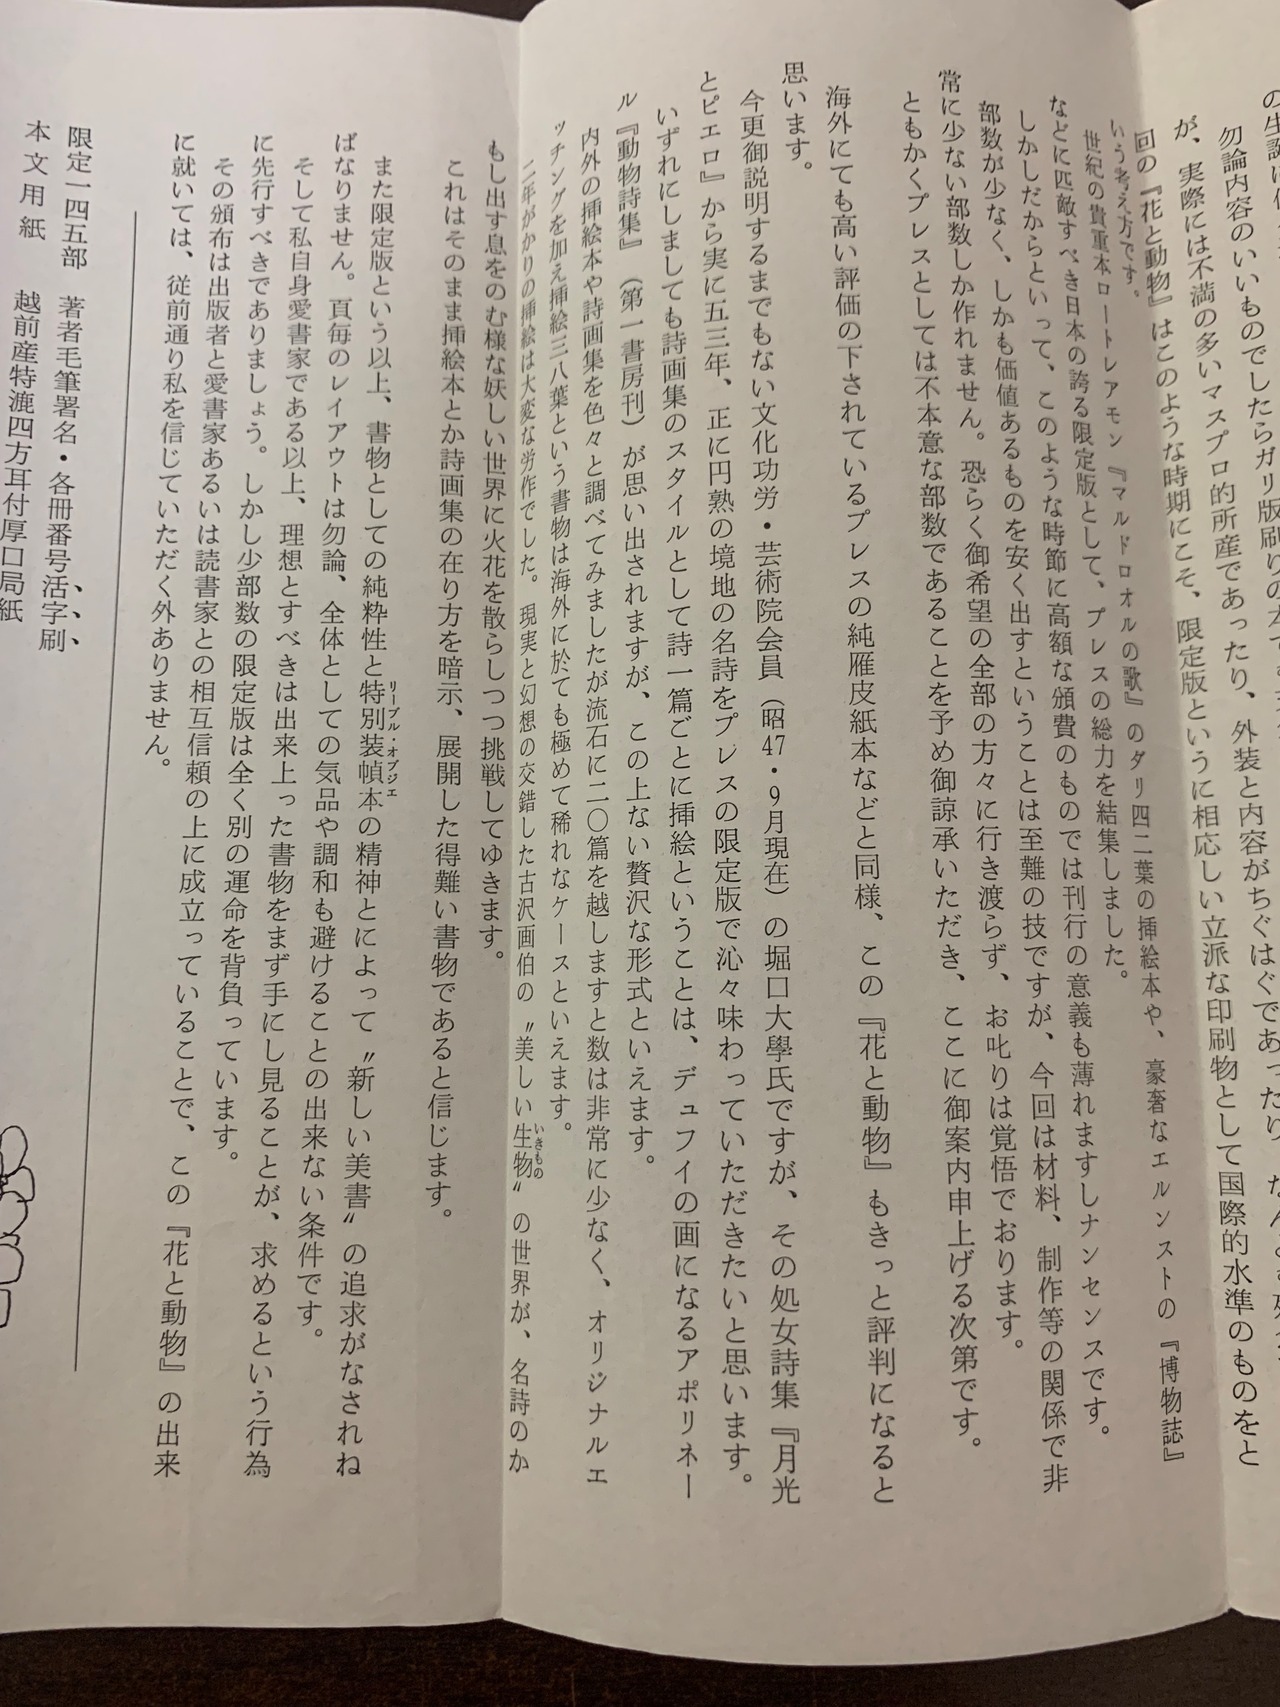 勿論内容のいいものでしたらガリ版刷りの本で
が、実際には不満の多いマスプロ的所産であったり、外装と内容がちぐはぐであったり、なんとも
回の『花と動物』はこのような時期にこそ、限定版というに相応しい立派な印刷物として国際的水準のものをと
いう考え方です。
世紀の貴重本ロートレアモン『マルドロオルの歌』のダリ四二葉の挿絵本や、豪奢なエルンストの『博物誌』
などに匹敵すべき日本の誇る限定版として、プレスの総力を結集しました。
しかしだからといって、このような時節に高額な頒費のものでは刊行の意義も薄れますしナンセンスです。
部数が少なく、しかも価値あるものを安く出すということは至難の技ですが、今回は材料、制作等の関係で非
常に少ない部数しか作れません。恐らく御希望の全部の方々に行き渡らず、お叱りは覚悟でおります。
ともかくプレスとしては不本意な部数であることを予め御諒承いただき、ここに御案内申上げる次第です。
海外にても高い評価の下されているプレスの純雁皮紙本などと同様、この『花と動物』もきっと評判になると
思います。
今更御説明するまでもない文化功労・芸術院会員（昭47・9月現在）の堀口大學氏ですが、その処女詩集『月光
とピエロ』から実に五三年、正に円熟の境地の名詩をプレスの限定版で沁々味わっていただきたいと思います。
いずれにしましても詩画集のスタイルとして詩一篇ごとに挿絵ということは、デュフイの画になるアポリネー
ル『動物詩集』（第一書房刊）が思い出されますが、この上ない贅沢な形式といえます。
内外の挿絵本や詩画集を色々と調べてみましたが流石に二〇篇を越しますと数は非常に少なく、オリジナルエ
ッチングを加え挿絵三八葉という書物は海外に於ても極めて稀れなケースといえます。
二年がかりの挿絵は大変な労作でした。現実と幻想の交錯した古沢画伯の〝美しい生物〟の世界が、名詩のか
いきもの
もし出す息をのむ様な妖しい世界に火花を散らしつつ挑戦してゆきます。
これはそのまま挿絵本とか詩画集の在り方を暗示、展開した得難い書物であると信じます。
また限定版という以上、書物としての純粋性と特別装幀本の精神とによって〝新しい美書〟の追求がなされね
リーブル・オブジエ
ばなりません。頁毎のレイアウトは勿論、全体としての気品や調和も避けることの出来ない条件です。
そして私自身愛書家である以上、理想とすべきは出来上った書物をまず手にし見ることが、求めるという行為
に先行すべきでありましょう。しかし少部数の限定版は全く別の運命を背負っています。
その頒布は出版者と愛書家あるいは読書家との相互信頼の上に成立っていることで、この『花と動物』の出来
に就いては、従前通り私を信じていただく外ありません。
限定一四五部　著者毛筆署名・各冊番号活字刷
本文用紙　越前産特漉四方耳付厚口局紙